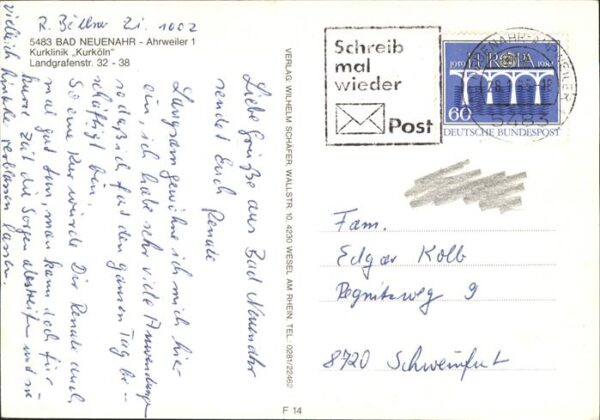 R. Bellm Zi. 1002
5483 BAD NEUENAHR - Ahrweiler 1
Kurklinik „Kurköln"
Landgrafenstr. 32 - 38
Liebe Grüße aus Bad Neuenahr
sendet Euch Renate
Langsam gewöhne ich mich hier
ein, ich habe sehr viele Anwendungen
sodaß ich fast den ganzen Tag be-
schäftigt bin.
So eine Kur würde Dir Renate auch
mal gut tun, man kann doch für
kurze Zeit die Sorgen abstreifen und
vielleicht hinter lassen.
VERLAG: WILHELM SCHÄFER, WALLSTR. 10, 4230 WESEL AM RHEIN, TEL.: 0281/22462
F 14
Schreib
mal
wieder
Post
EUROPA
60
DEUTSCHE BUNDESPOST
5483
Fam.
Edgar Kolb
Pegnitzweg 9
8720 Schweinfurt